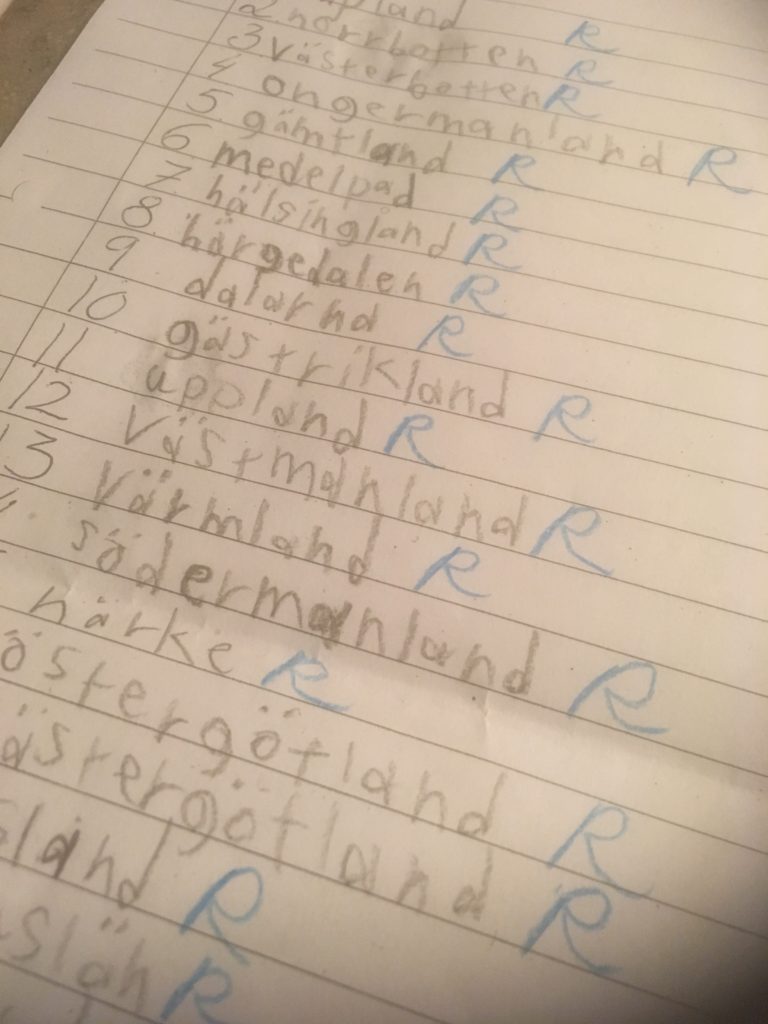 land R
2 norrbotten R
3 västerbotten R
4 ongermanland R
5 gämtland R
6 medelpad R
7 hälsingland R
8 härgedalen R
9 dalarna R
10 gästrikland R
11 uppland R
12 Västmanland R
13 Värmland R
södermanland R
närke R
östergötland R
ästergötland R
sland R
slän R